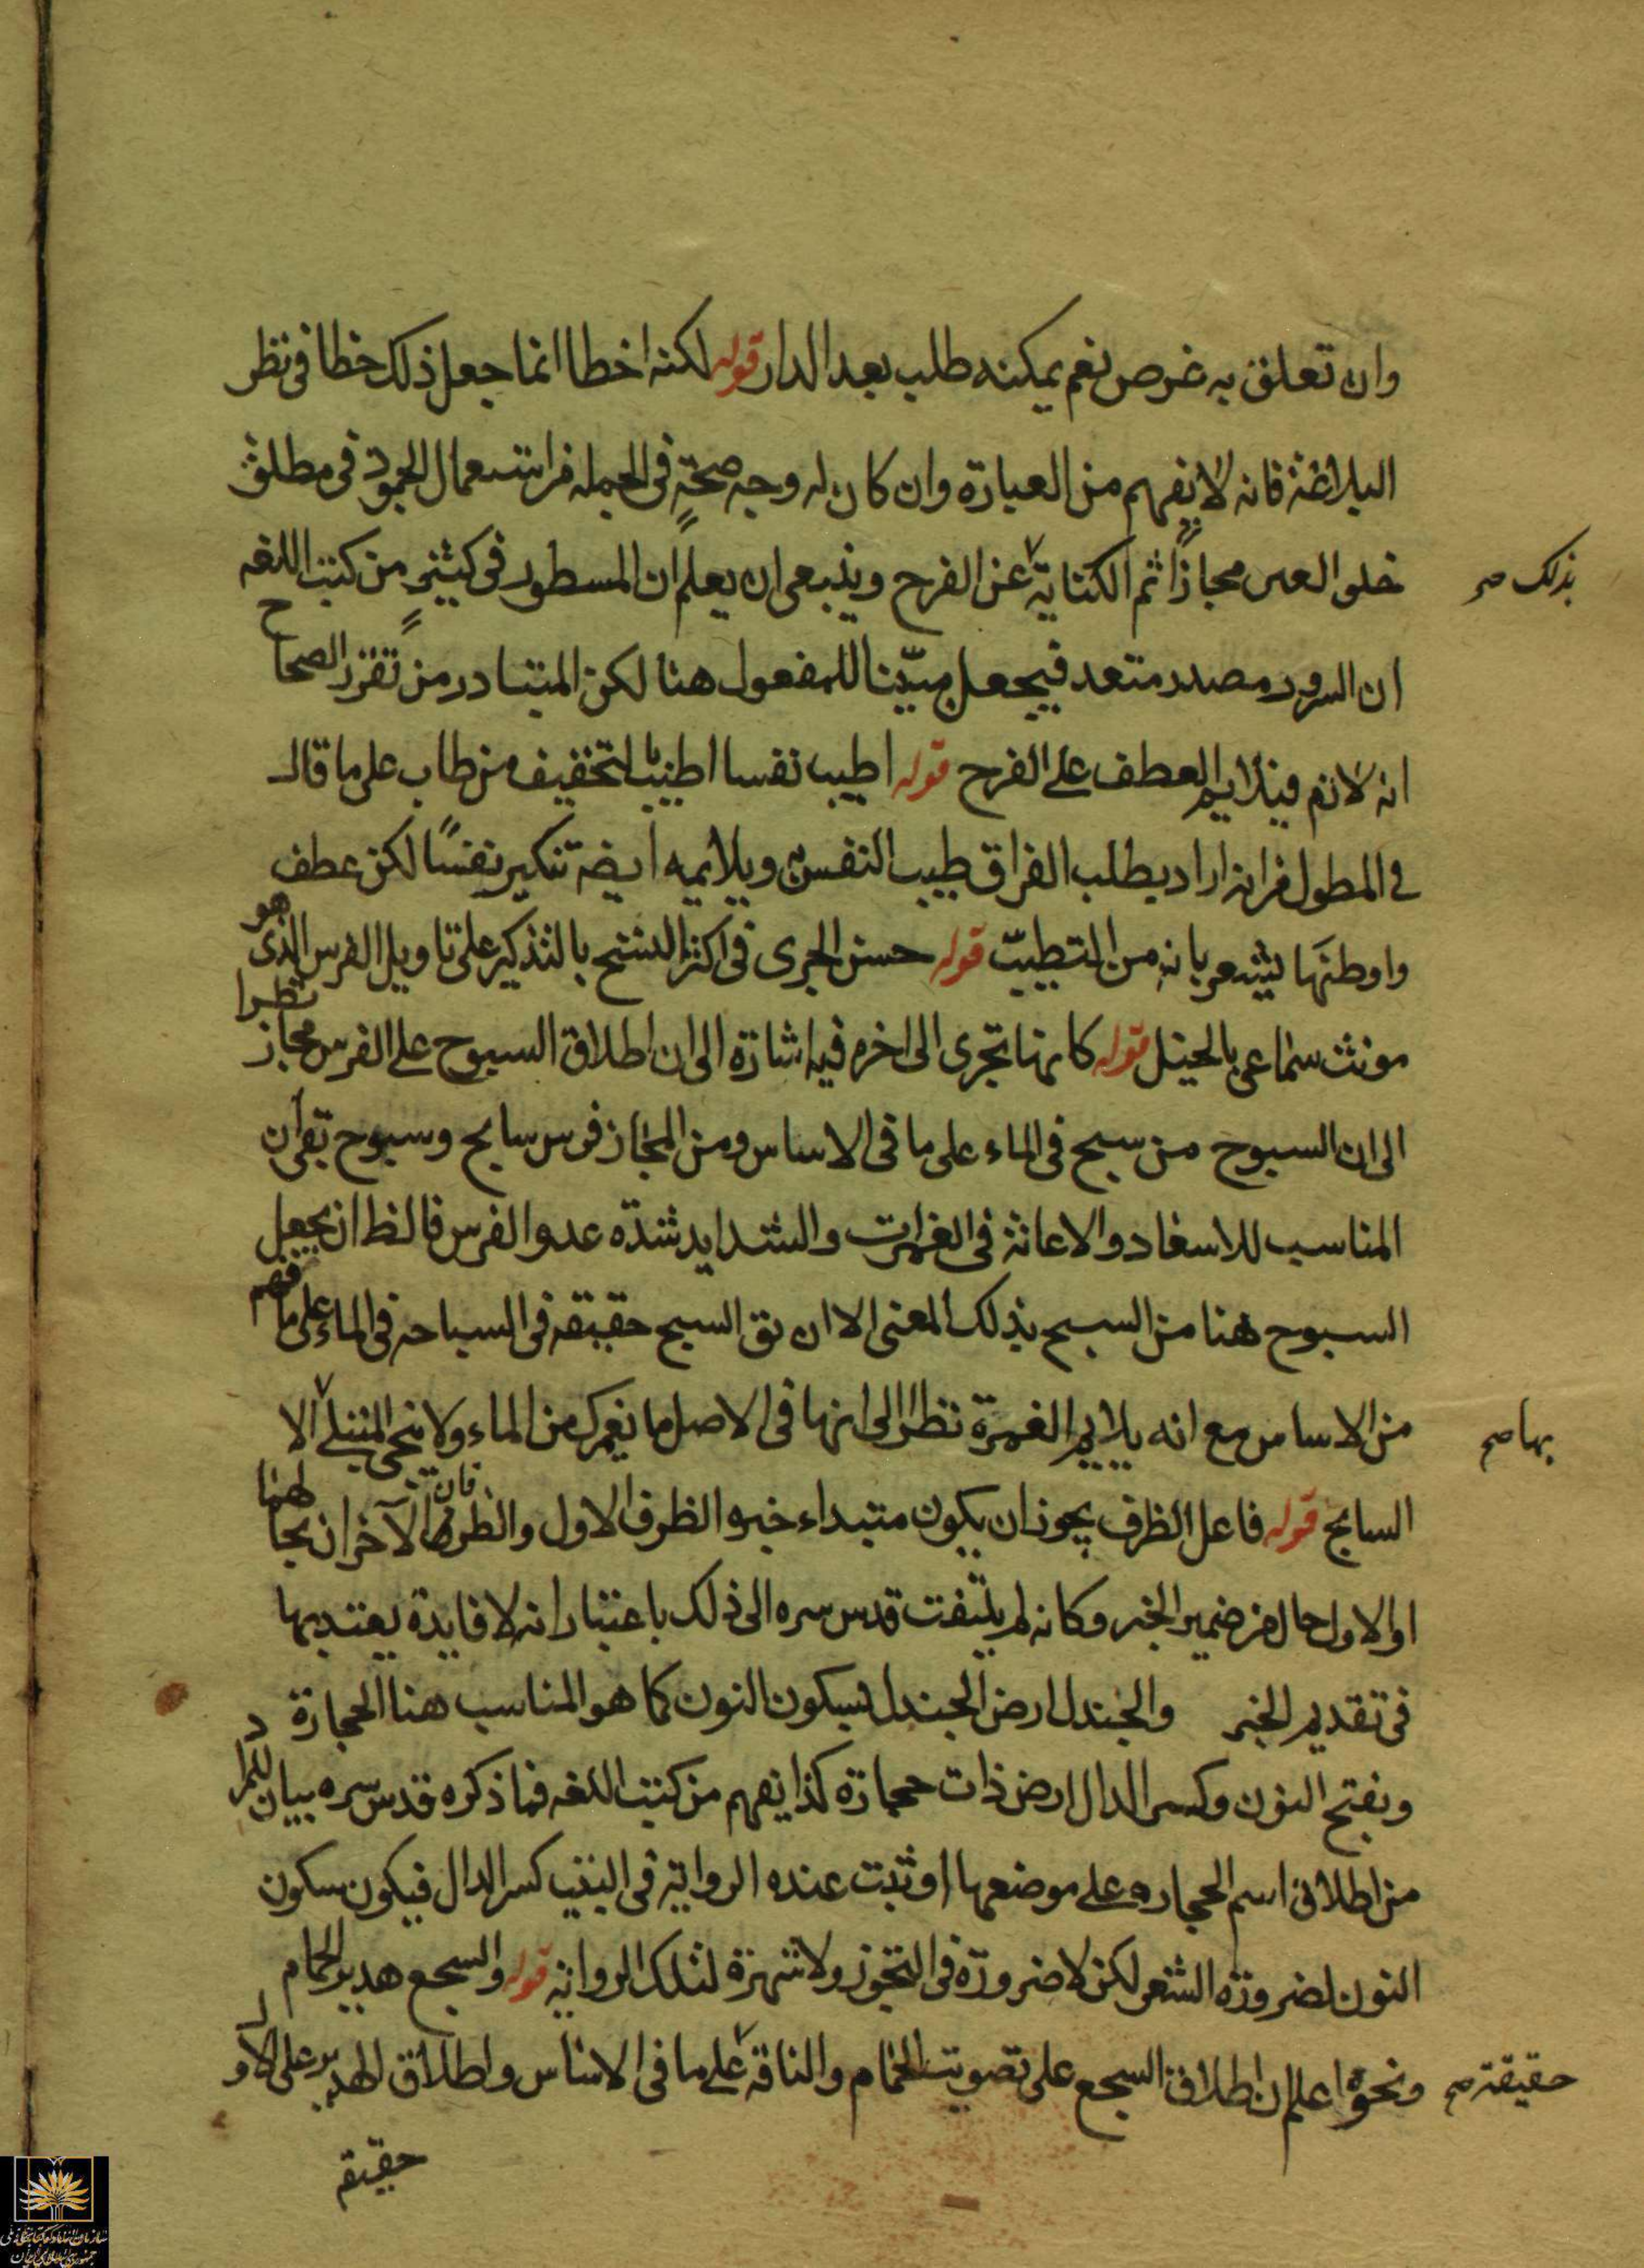 وان تعلق به غرض نعم يمكنه طلب بعد الدار قوله لكنه اخطا انما جعل ذلك خطا فى نظر
البلاغة فانه لا يفهم من العبارة وان كان له وجه صحة فى الجملة من استعمال الجمود فى مطلق
خلو العين مجازا ثم الكناية عن الفرح وينبغى ان يعلم ان المسطور فى كثير من كتب اللغه
بذلك صح
ان السرور مصدر متعد فيجعل مبنيا للمفعول هنا لكن المتبادر من تقرير الصحاح
انه لازم فيلايم العطف على الفرح قوله اطيب نفسا اطيب بالتخفيف من طاب على ما قال
فى المطول من انه اراد بطلب الفراق طيب النفس به ويلايمه ايضا تنكير نفسًا لكن عطف
واوطنها يشعر بانه من التطييب قوله حسن الجرى فى اكثر النسخ بالتذكير على تاويل الفرس الذى هو
مونث سماعى بالخيل قوله كانها تجرى الى اخره فيه اشارة الى ان اطلاق السبوح على الفرس مجاز نظرا
الى ان السبوح من سبح فى الماء على ما فى الاساس ومن المجاز فرس سابح وسبوح بقى ان
المناسب للاسعاد والاعانة فى الغمرات والشدايد شدة عدو الفرس فالظ ان يجعل
السبوح هنا من السبح بذلك المعنى الا ان يق السبح حقيقه فى السباحه فى الماء على ما فهم
من الاساس مع انه يلايم الغمرة نظرا الى انها فى الاصل ما يغمرك من الماء ولا ينجى المبتلى الا
بها صح
السابح قوله فاعل الظرف يجوز ان يكون مبتداء خبره الظرف الاول والظرفان الآخران بحالهما
او الاول حال من ضمير الخبر وكانه لم يلتفت قدس سره الى ذلك باعتبار انه لا فايدة يعتد بها
فى تقديم الخبر والجندل ارض الجندل بسكون النون كما هو المناسب هنا الحجارة
وبفتح النون وكسر الدال ارض ذات حجارة كذا يفهم من كتب اللغه فما ذكره قدس سره بيان للمراد
من اطلاق اسم الحجاره على موضعها او ثبت عنده الرواية فى البيت كسر الدال فيكون سكون
النون لضرورة الشعر لكن لا ضرورة فى التجوز ولا شهرة لتلك الرواية قوله والسجع هدير الحمام
ونحوه اعلم ان اطلاق السجع على تصويت الحمام والناقة على ما فى الاساس واطلاق الهدير على الاول
حقيقة صح
حقيقة